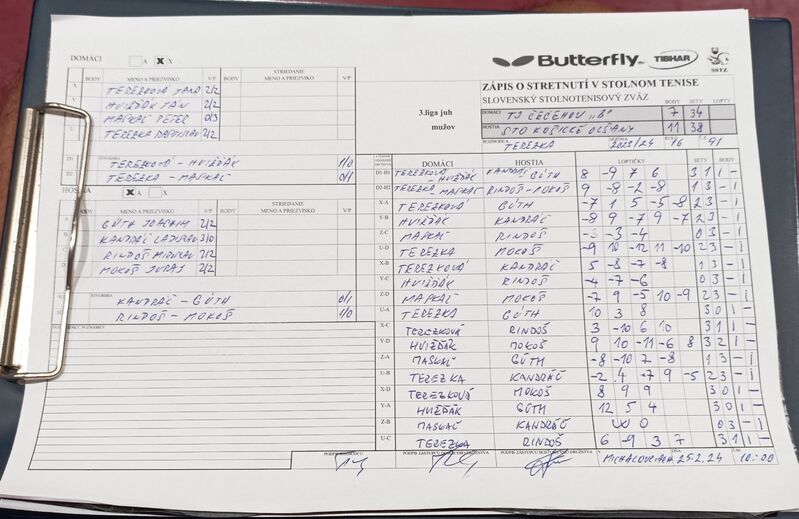 Butterfly
TIBHAR
SSTZ
ZÁPIS O STRETNUTÍ V STOLNOM TENISE
SLOVENSKÝ STOLNOTENISOVÝ ZVÄZ
3.liga juh
mužov
BODY SETY LOPTY
DOMÁCI TJ ČEČEHOV „B" 7 34
HOSTIA STO KOŠICKÉ OĽŠANY 11 38
ROZHODCA TEREZKA SEZÓNA 2023/24 KOLO 16 Č. 91
DOMÁCI A X X
BODY MENO A PRIEZVISKO V/P BODY STRIEDANIE MENO A PRIEZVISKO V/P
X TEREZKOVÁ JANA 2/2
Y HVIŽĎÁK JÁN 2/2
MASKAĽ PETER 0/3
U TEREZKA 2/2
D1 ŠTVORHRA TEREZKOVÁ - HVIŽĎÁK 1/0
D2 TEREZKA - MASKAĽ 0/1
HOSTIA X A X
BODY MENO A PRIEZVISKO V/P BODY STRIEDANIE MENO A PRIEZVISKO V/P
A GÚTH JOACHIM 2/2
B KANDRÁČ LADISLAV 3/0
RINDOŠ MIROSLAV 2/2
D MOKOŠ JURAJ 2/2
ŠTVORHRA KANDRÁČ - GÚTH 0/1
RINDOŠ - MOKOŠ 1/0
POZNÁMKY
DOMÁCI HOSTIA LOPTIČKY SETY BODY
D1-H1 TEREZKOVÁ HVIŽĎÁK KANDRÁČ GÚTH 8 -9 7 6 3 1 1 -
D2-H2 TEREZKA MASKAĽ RINDOŠ-MOKOŠ 9 -8 -2 -8 1 3 - 1
X-A TEREZKOVÁ GÚTH -7 1 5 -5 -8 2 3 - 1
Y-B HVIŽĎÁK KANDRÁČ -8 9 -7 9 -7 2 3 - 1
Z-C MASKAĽ RINDOŠ -3 -4 0 3 - 1
U-D TEREZKA MOKOŠ -9 10 -12 11 -10 2 3 - 1
X-B TEREZKOVÁ KANDRÁČ 5 -8 -7 -8 1 3 - 1
Y-C HVIŽĎÁK RINDOŠ -4 -7 -6 0 3 - 1
Z-D MASKAĽ MOKOŠ -7 9 -5 10 -9 2 3 - 1
U-A TEREZKA GÚTH 10 3 8 3 0 1 -
X-C TEREZKOVÁ RINDOŠ 3 -10 6 10 3 1 1 -
Y-D HVIŽĎÁK MOKOŠ 9 10 -11 -6 8 3 2 1 -
Z-A MASKAĽ GÚTH -8 -10 7 -8 1 3 - 1
U-B TEREZKA KANDRÁČ -2 4 -7 9 -5 2 3 - 1
X-D TEREZKOVÁ MOKOŠ 8 9 9 3 0 1 -
Y-A HVIŽĎÁK GÚTH 12 5 4 3 0 1 -
Z-B MASKAĽ KANDRÁČ W O 0 3 - 1
U-C TEREZKA RINDOŠ 6 -9 3 7 3 1 1 -
PODPIS ROZHODCU PODPIS ZÁSTUPCU DOMÁCEHO DRUŽSTVA PODPIS ZÁSTUPCU HOSTÍ DRUŽSTVA V MICHALOVCIACH DŇA 25.2.24 ČAS 10:00